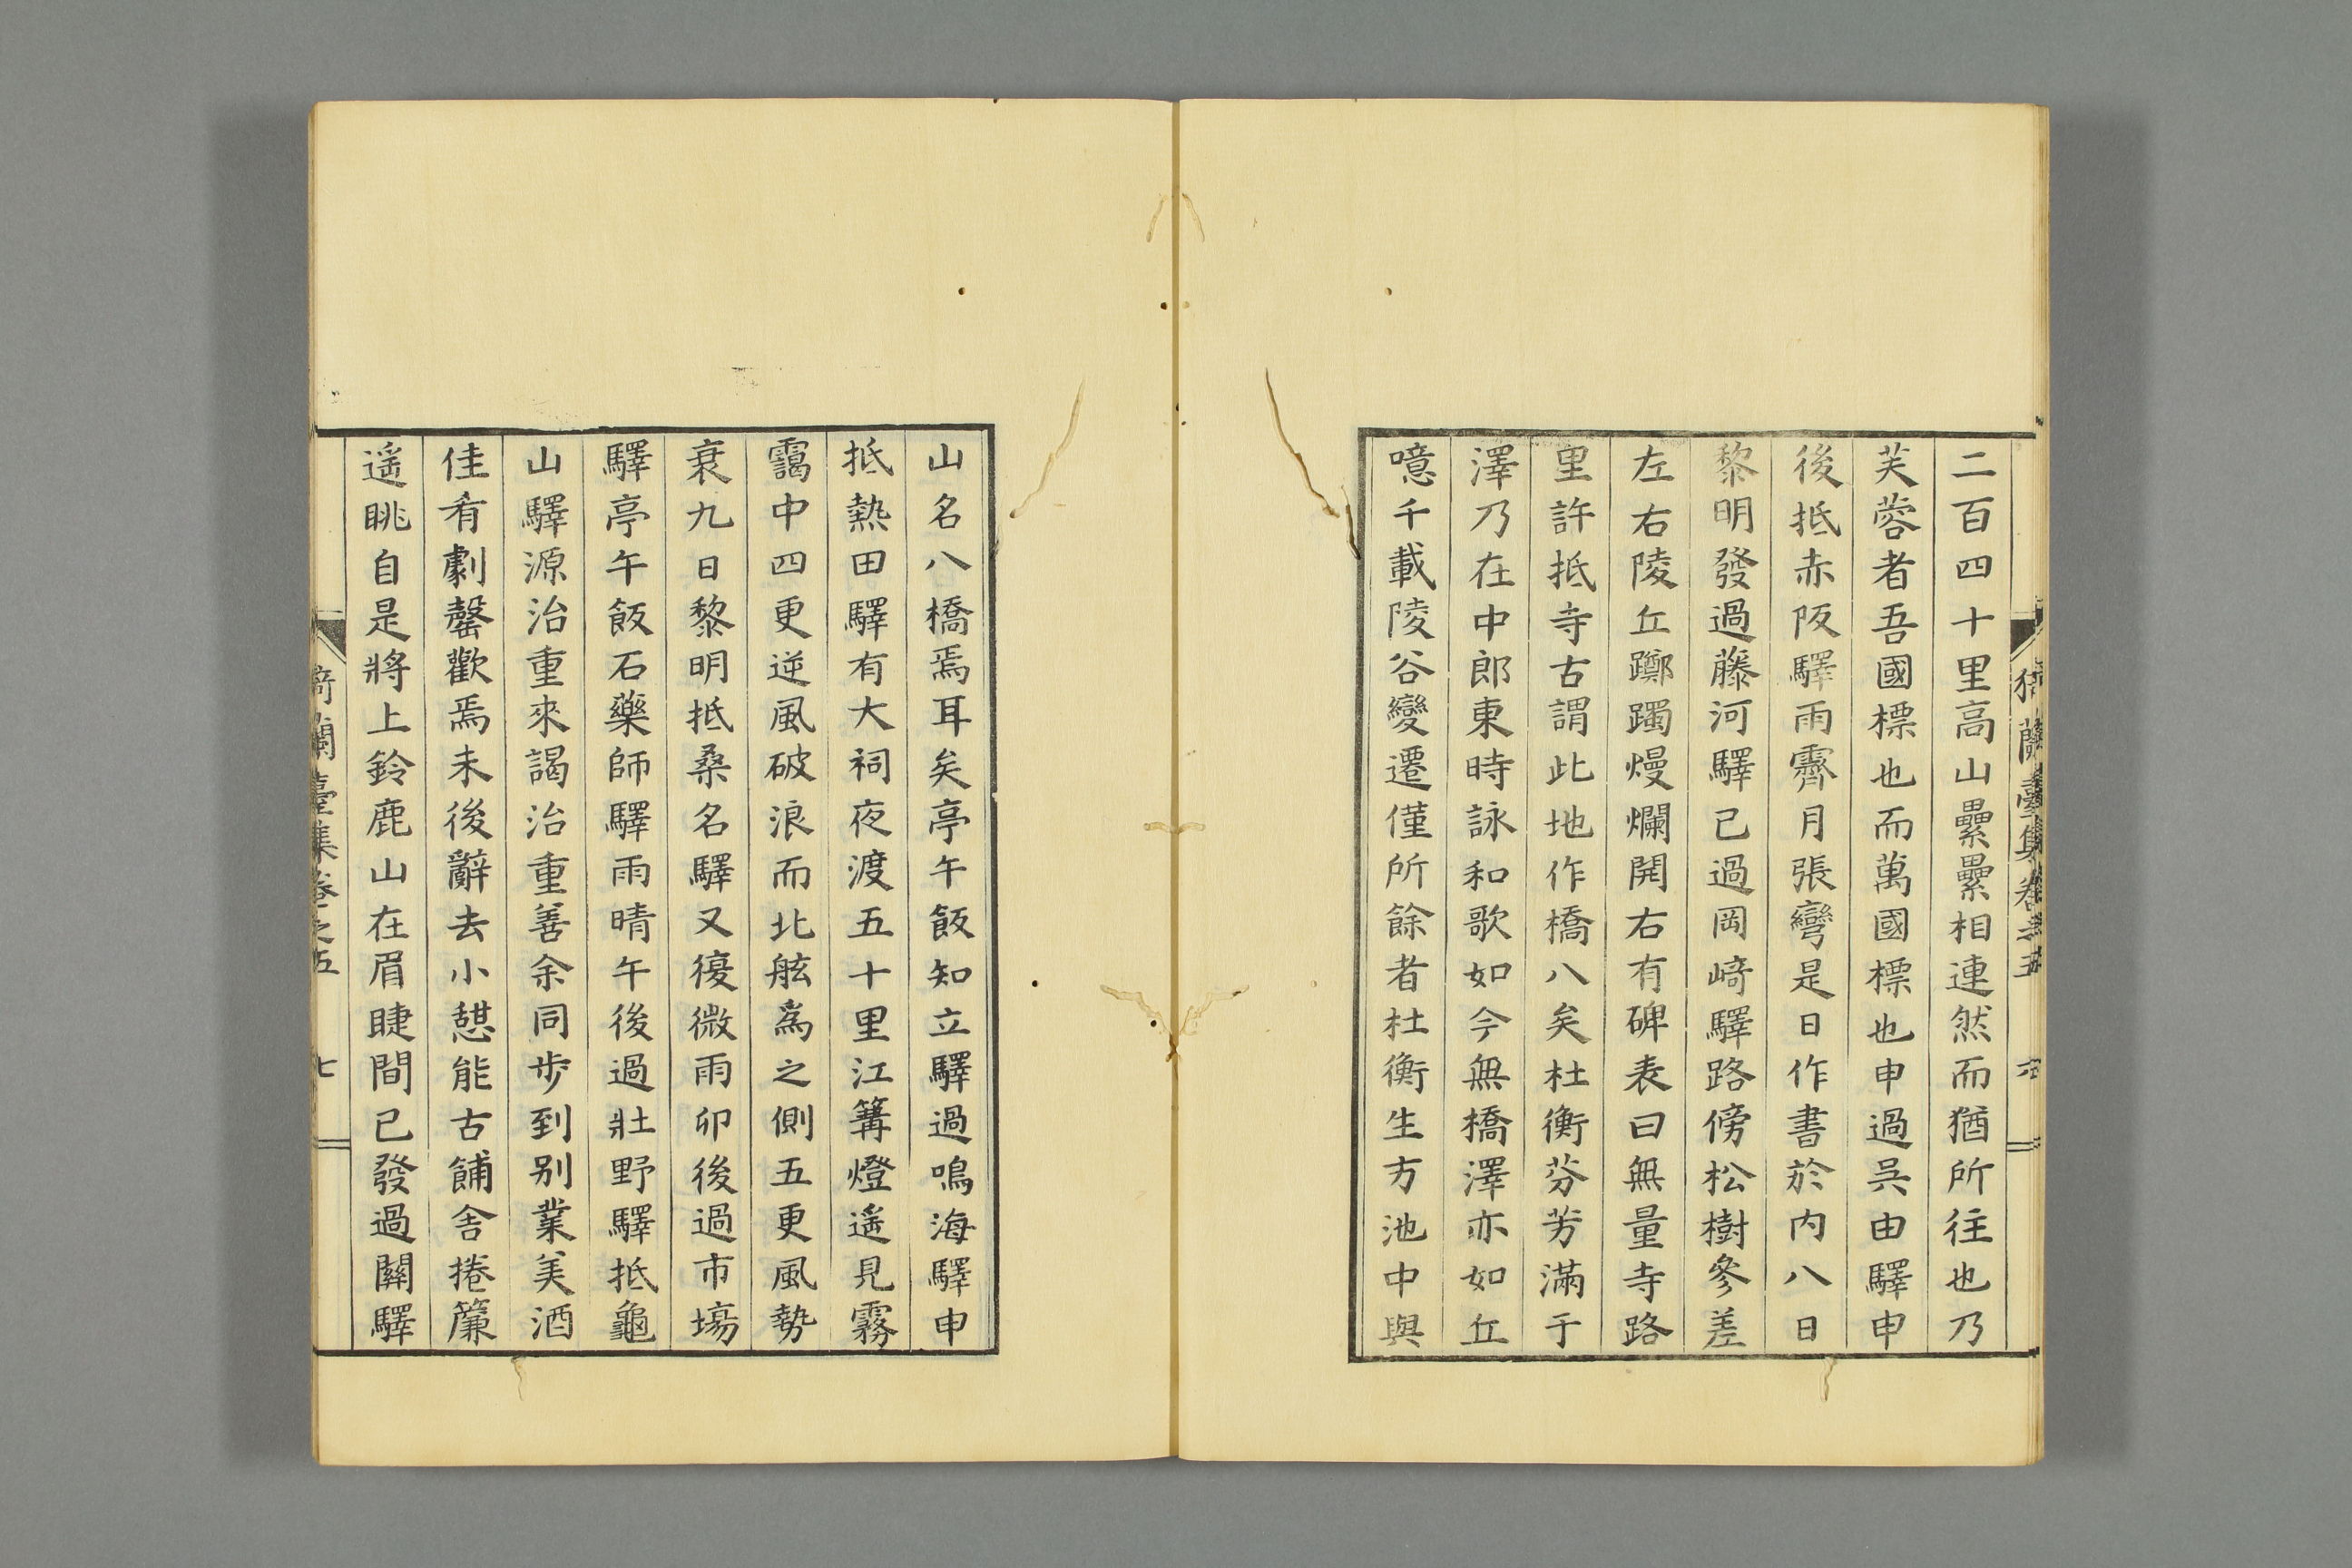 二百四十里高山纍纍相連然而猶所往也乃
芙蓉者吾國標也而萬國標也申過吳由驛申
後抵赤阪驛雨霽月張彎是日作書於内八日
黎明發過藤河驛已過岡﨑驛路傍松樹參差
左右陵丘躑躅熳爛開右有碑表曰無量寺路
里許抵寺古謂此地作橋八矣杜衡芬芳滿于
澤乃在中郎東時詠和歌如今無橋澤亦如丘
噫千載陵谷變遷僅所餘者杜衡生方池中與
猗蘭臺集卷之五 六
山名八橋焉耳矣亭午飯知立驛過鳴海驛申
抵熱田驛有大祠夜渡五十里江篝燈遙見霧
靄中四更逆風破浪而北舷為之側五更風勢
衰九日黎明抵桑名驛又復微雨卯後過市場
驛亭午飯石藥師驛雨晴午後過壯野驛抵龜
山驛源治重來謁治重善余同步到別業美酒
佳肴劇罄歡焉未後辭去小憩能古餔舍捲簾
遥眺自是將上鈴鹿山在眉睫間已發過關驛
猗蘭臺集卷之五 七